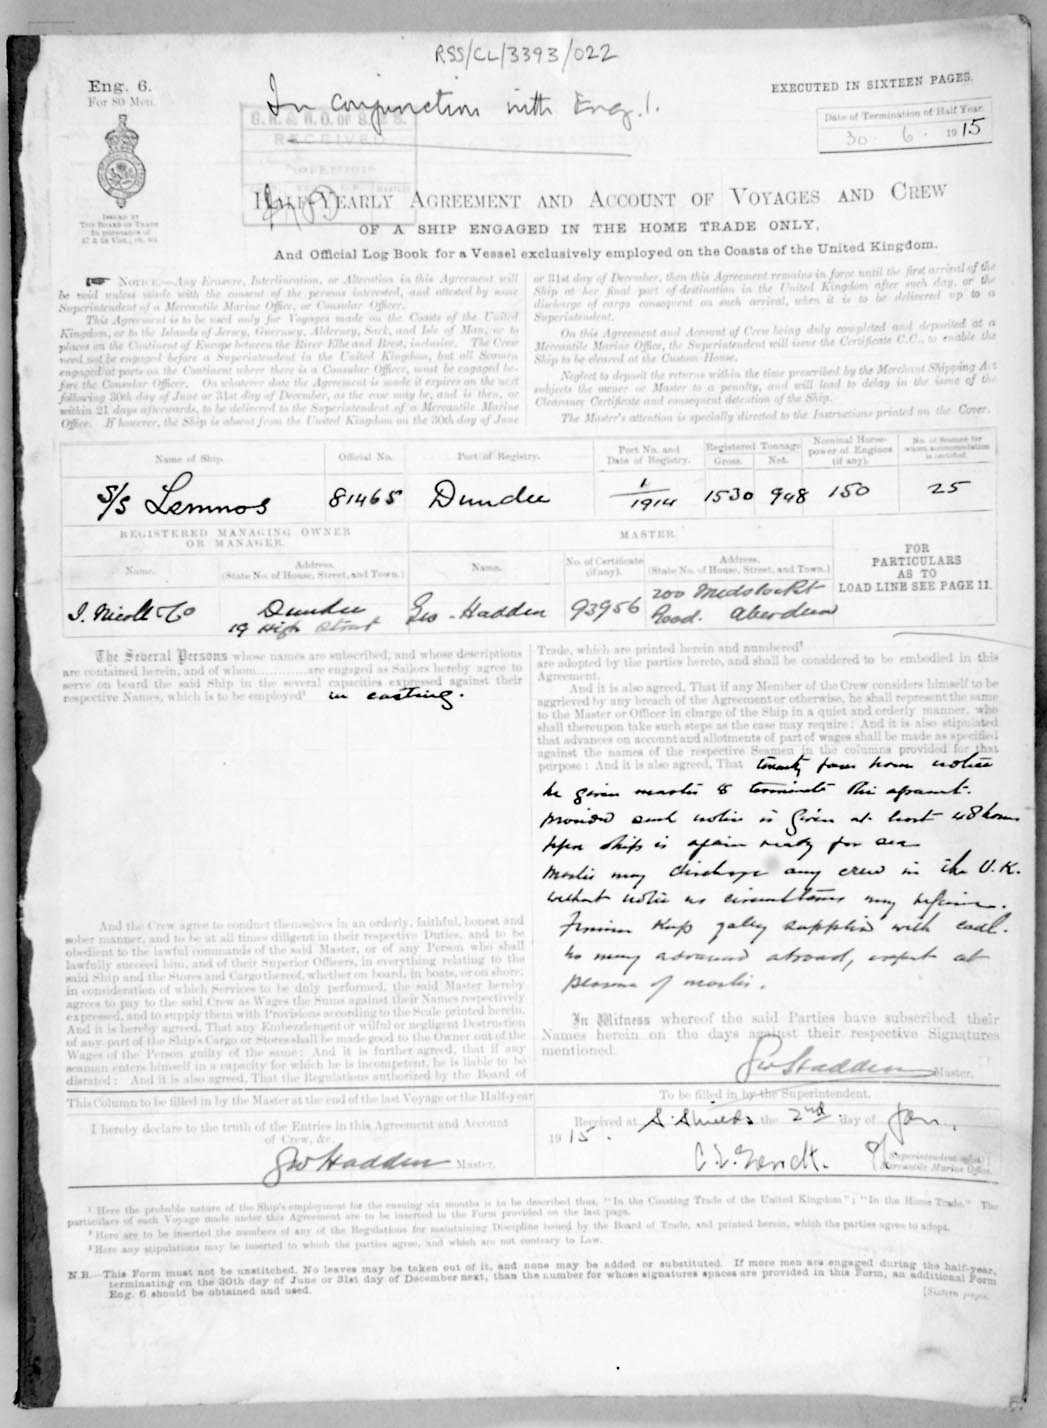 RSS/CL/3393/022
Eng. 6.
For 80 Men.
In conjunction with Eng. 1.
EXECUTED IN SIXTEEN PAGES.
Date of Termination of Half Year.
30. 6. 1915
RECEIVED
ISSUED BY
THE BOARD OF TRADE
in pursuance of
57 & 58 Vict., ch. 60.
HALF-YEARLY AGREEMENT AND ACCOUNT OF VOYAGES AND CREW
OF A SHIP ENGAGED IN THE HOME TRADE ONLY,
And Official Log Book for a Vessel exclusively employed on the Coasts of the United Kingdom.
NOTICE.—Any Erasure, Interlineation, or Alteration in this Agreement will
be void unless made with the consent of the persons interested, and attested by some
Superintendent of a Mercantile Marine Office, or Consular Officer.
This Agreement is to be used only for Voyages made on the Coasts of the United
Kingdom, or to the Islands of Jersey, Guernsey, Alderney, Sark, and Isle of Man, or to
places on the Continent of Europe between the River Elbe and Brest, inclusive. The Crew
need not be engaged before a Superintendent in the United Kingdom, but all Seamen
engaged at ports on the Continent where there is a Consular Officer, must be engaged be-
fore the Consular Officer. On whatever date the Agreement is made it expires on the next
following 30th day of June or 31st day of December, as the case may be, and is then, or
within 21 days afterwards, to be delivered to the Superintendent of a Mercantile Marine
Office. If however, the Ship is absent from the United Kingdom on the 30th day of June
or 31st day of December, then this Agreement remains in force until the first arrival of the
Ship at her final port of destination in the United Kingdom after such day, or the
discharge of cargo consequent on such arrival, when it is to be delivered up to a
Superintendent.
On this Agreement and Account of Crew being duly completed and deposited at a
Mercantile Marine Office, the Superintendent will issue the Certificate C.C., to enable the
Ship to be cleared at the Custom House.
Neglect to deposit the returns within the time prescribed by the Merchant Shipping Act
subjects the owner or Master to a penalty, and will lead to delay in the issue of the
Clearance Certificate and consequent detention of the Ship.
The Master's attention is specially directed to the Instructions printed on the Cover.
Name of Ship. Official No. Port of Registry. Port No. and Date of Registry. Registered Tonnage Gross. Net. Nominal Horse-power of Engines (if any). No. of Seamen for whom accommodation is certified.
S/S Lemnos 81465 Dundee 1/1914 1530 948 150 25
REGISTERED MANAGING OWNER OR MANAGER. MASTER.
Name. Address. (State No. of House, Street, and Town.) Name. No. of Certificate (if any). Address. (State No. of House, Street, and Town.)
FOR
PARTICULARS
AS TO
LOAD LINE SEE PAGE 11.
J. Nicoll & Co Dundee 19 High Street Geo. Hadden 93956 200 Midstocket Road. Aberdeen
The Several Persons whose names are subscribed, and whose descriptions
are contained herein, and of whom............are engaged as Sailors hereby agree to
serve on board the said Ship in the several capacities expressed against their
respective Names, which is to be employed¹ in coasting.
And the Crew agree to conduct themselves in an orderly, faithful, honest and
sober manner, and to be at all times diligent in their respective Duties, and to be
obedient to the lawful commands of the said Master, or of any Person who shall
lawfully succeed him, and of their Superior Officers, in everything relating to the
said Ship and the Stores and Cargo thereof, whether on board, in boats, or on shore;
in consideration of which Services to be duly performed, the said Master hereby
agrees to pay to the said Crew as Wages the Sums against their Names respectively
expressed, and to supply them with Provisions according to the Scale printed herein.
And it is hereby agreed, That any Embezzlement or wilful or negligent Destruction
of any part of the Ship's Cargo or Stores shall be made good to the Owner out of the
Wages of the Person guilty of the same: And it is further agreed, that if any
seaman enters himself in a capacity for which he is incompetent, he is liable to be
disrated: And it is also agreed, That the Regulations authorized by the Board of
Trade, which are printed herein and numbered²
are adopted by the parties hereto, and shall be considered to be embodied in this
Agreement.
And it is also agreed, That if any Member of the Crew considers himself to be
aggrieved by any breach of the Agreement or otherwise, he shall represent the same
to the Master or Officer in charge of the Ship in a quiet and orderly manner, who
shall thereupon take such steps as the case may require: And it is also stipulated
that advances on account and allotments of part of wages shall be made as specified
against the names of the respective Seamen in the columns provided for that
purpose: And it is also agreed, That twenty four hours notice
be given master to terminate this agreemt.
provided such notice is given at least 48 hours
before ship is again ready for sea
Master may discharge any crew in the U.K.
without notice as circumstances may require.
Firemen keep galley supplied with coal.
No money advanced abroad, except at
pleasure of master.
In Witness whereof the said Parties have subscribed their
Names herein on the days against their respective Signatures
mentioned.
Geo Hadden Master.
This Column to be filled in by the Master at the end of the last Voyage or the Half-year
I hereby declare to the truth of the Entries in this Agreement and Account
of Crew, &c.
Geo Hadden Master.
To be filled in by the Superintendent.
Received at S. Shields the 2nd day of Jan.
1915.
Superintendent of the
Mercantile Marine Office.
¹ Here the probable nature of the Ship's employment for the ensuing six months is to be described thus, "In the Coasting Trade of the United Kingdom"; "In the Home Trade." The
particulars of each Voyage made under this Agreement are to be inserted in the Form provided on the last page.
² Here are to be inserted the numbers of any of the Regulations for maintaining Discipline issued by the Board of Trade, and printed herein, which the parties agree to adopt.
³ Here any stipulations may be inserted to which the parties agree, and which are not contrary to Law.
N.B.—This Form must not be unstitched. No leaves may be taken out of it, and none may be added or substituted. If more men are engaged during the half-year,
terminating on the 30th day of June or 31st day of December next, than the number for whose signatures spaces are provided in this Form, an additional Form
Eng. 6 should be obtained and used.
[Sixteen pages.